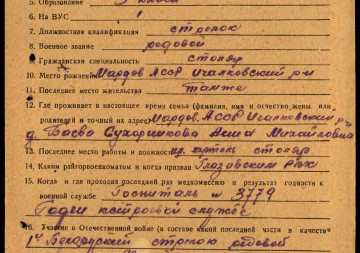 5. Образование
6. На ВУС 1
7. Должностная квалификация стрелок
8. Военное звание рядовой
9. Гражданская специальность столяр
10. Место рождения Мордов. Асср Ичалковский р-н
11. Последнее место жительства там же
12. Где проживает в настоящее время семья (фамилия, имя и отчество жены или
родителей и точный их адрес) Мордов. Асср Ичалковский р-н
д. Баева Сухорникова Анна Михайлов
13. Последнее место работы и должность артель столяр
14. Каким райгорвоенкоматом и когда призван Глазовским рвк
15. Когда и где проходил последний раз медкомиссию и результат годности к
военной службе Госпиталь № 3779
Годен к строевой службе
16. Участие в Отечественной войне (в составе какой последней части в качестве
1й Белорусский стрелок рядовой